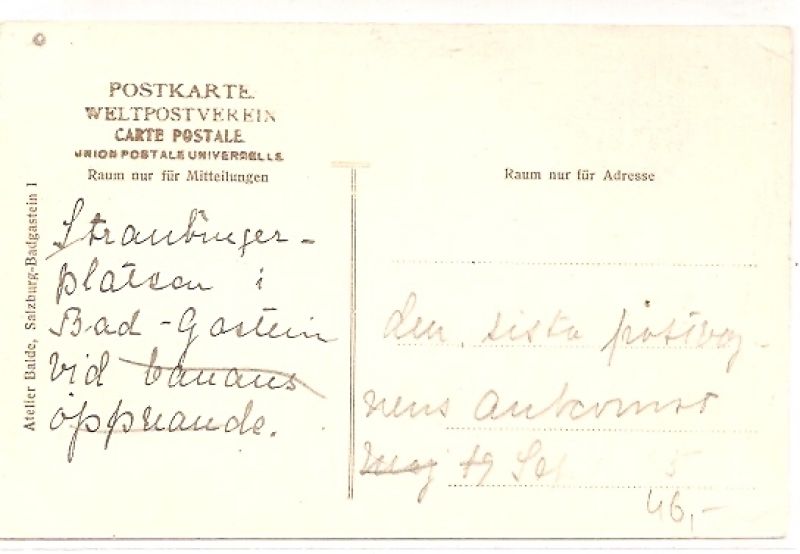 POSTKARTE
WELTPOSTVEREIN
CARTE POSTALE
UNION POSTALE UNIVERSELLE
Raum nur für Mitteilungen
Raum nur für Adresse
Atelier Balde, Salzburg-Badgastein I
Straubinger-
platsen i
Bad-Gastein
vid banans
öppnande.
den sista postvag-
nens ankomst
19
46,-